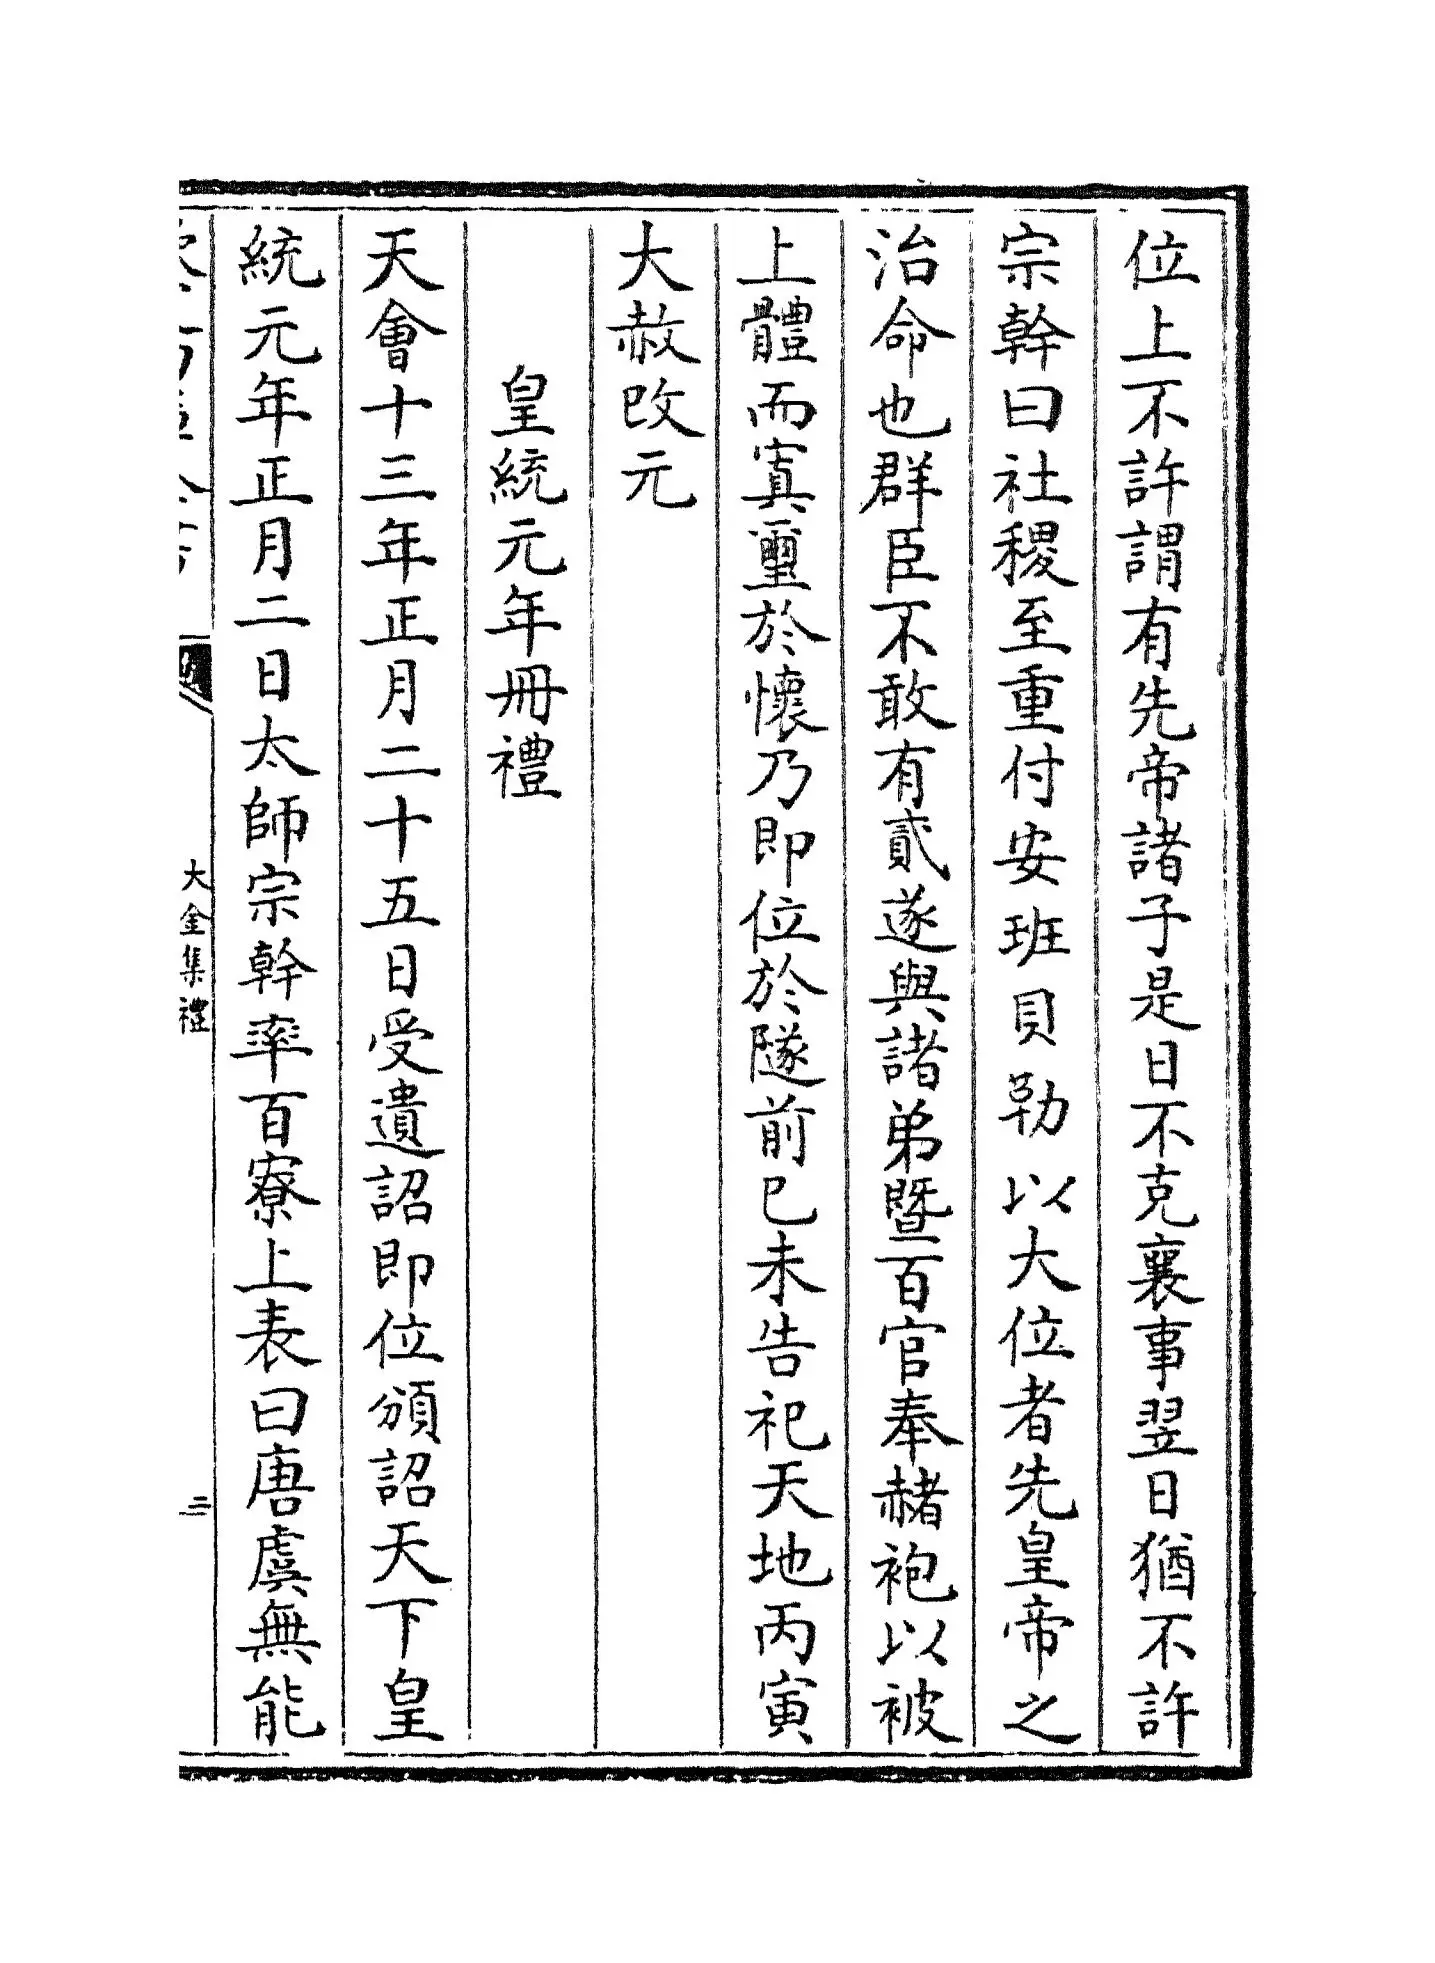 位上不許謂有先帝諸子是日不克襄事翌日猶不許
宗幹曰社稷至重付安班貝勒以大位者先皇帝之
治命也群臣不敢有貳遂與諸弟暨百官奉赭袍以被
上體而寘璽於懷乃即位於隧前已未告祀天地丙寅
大赦改元
皇統元年冊禮
天會十三年正月二十五日受遺詔即位頒詔天下皇
統元年正月二日太師宗幹率百寮上表曰唐虞無能
大金集禮
三